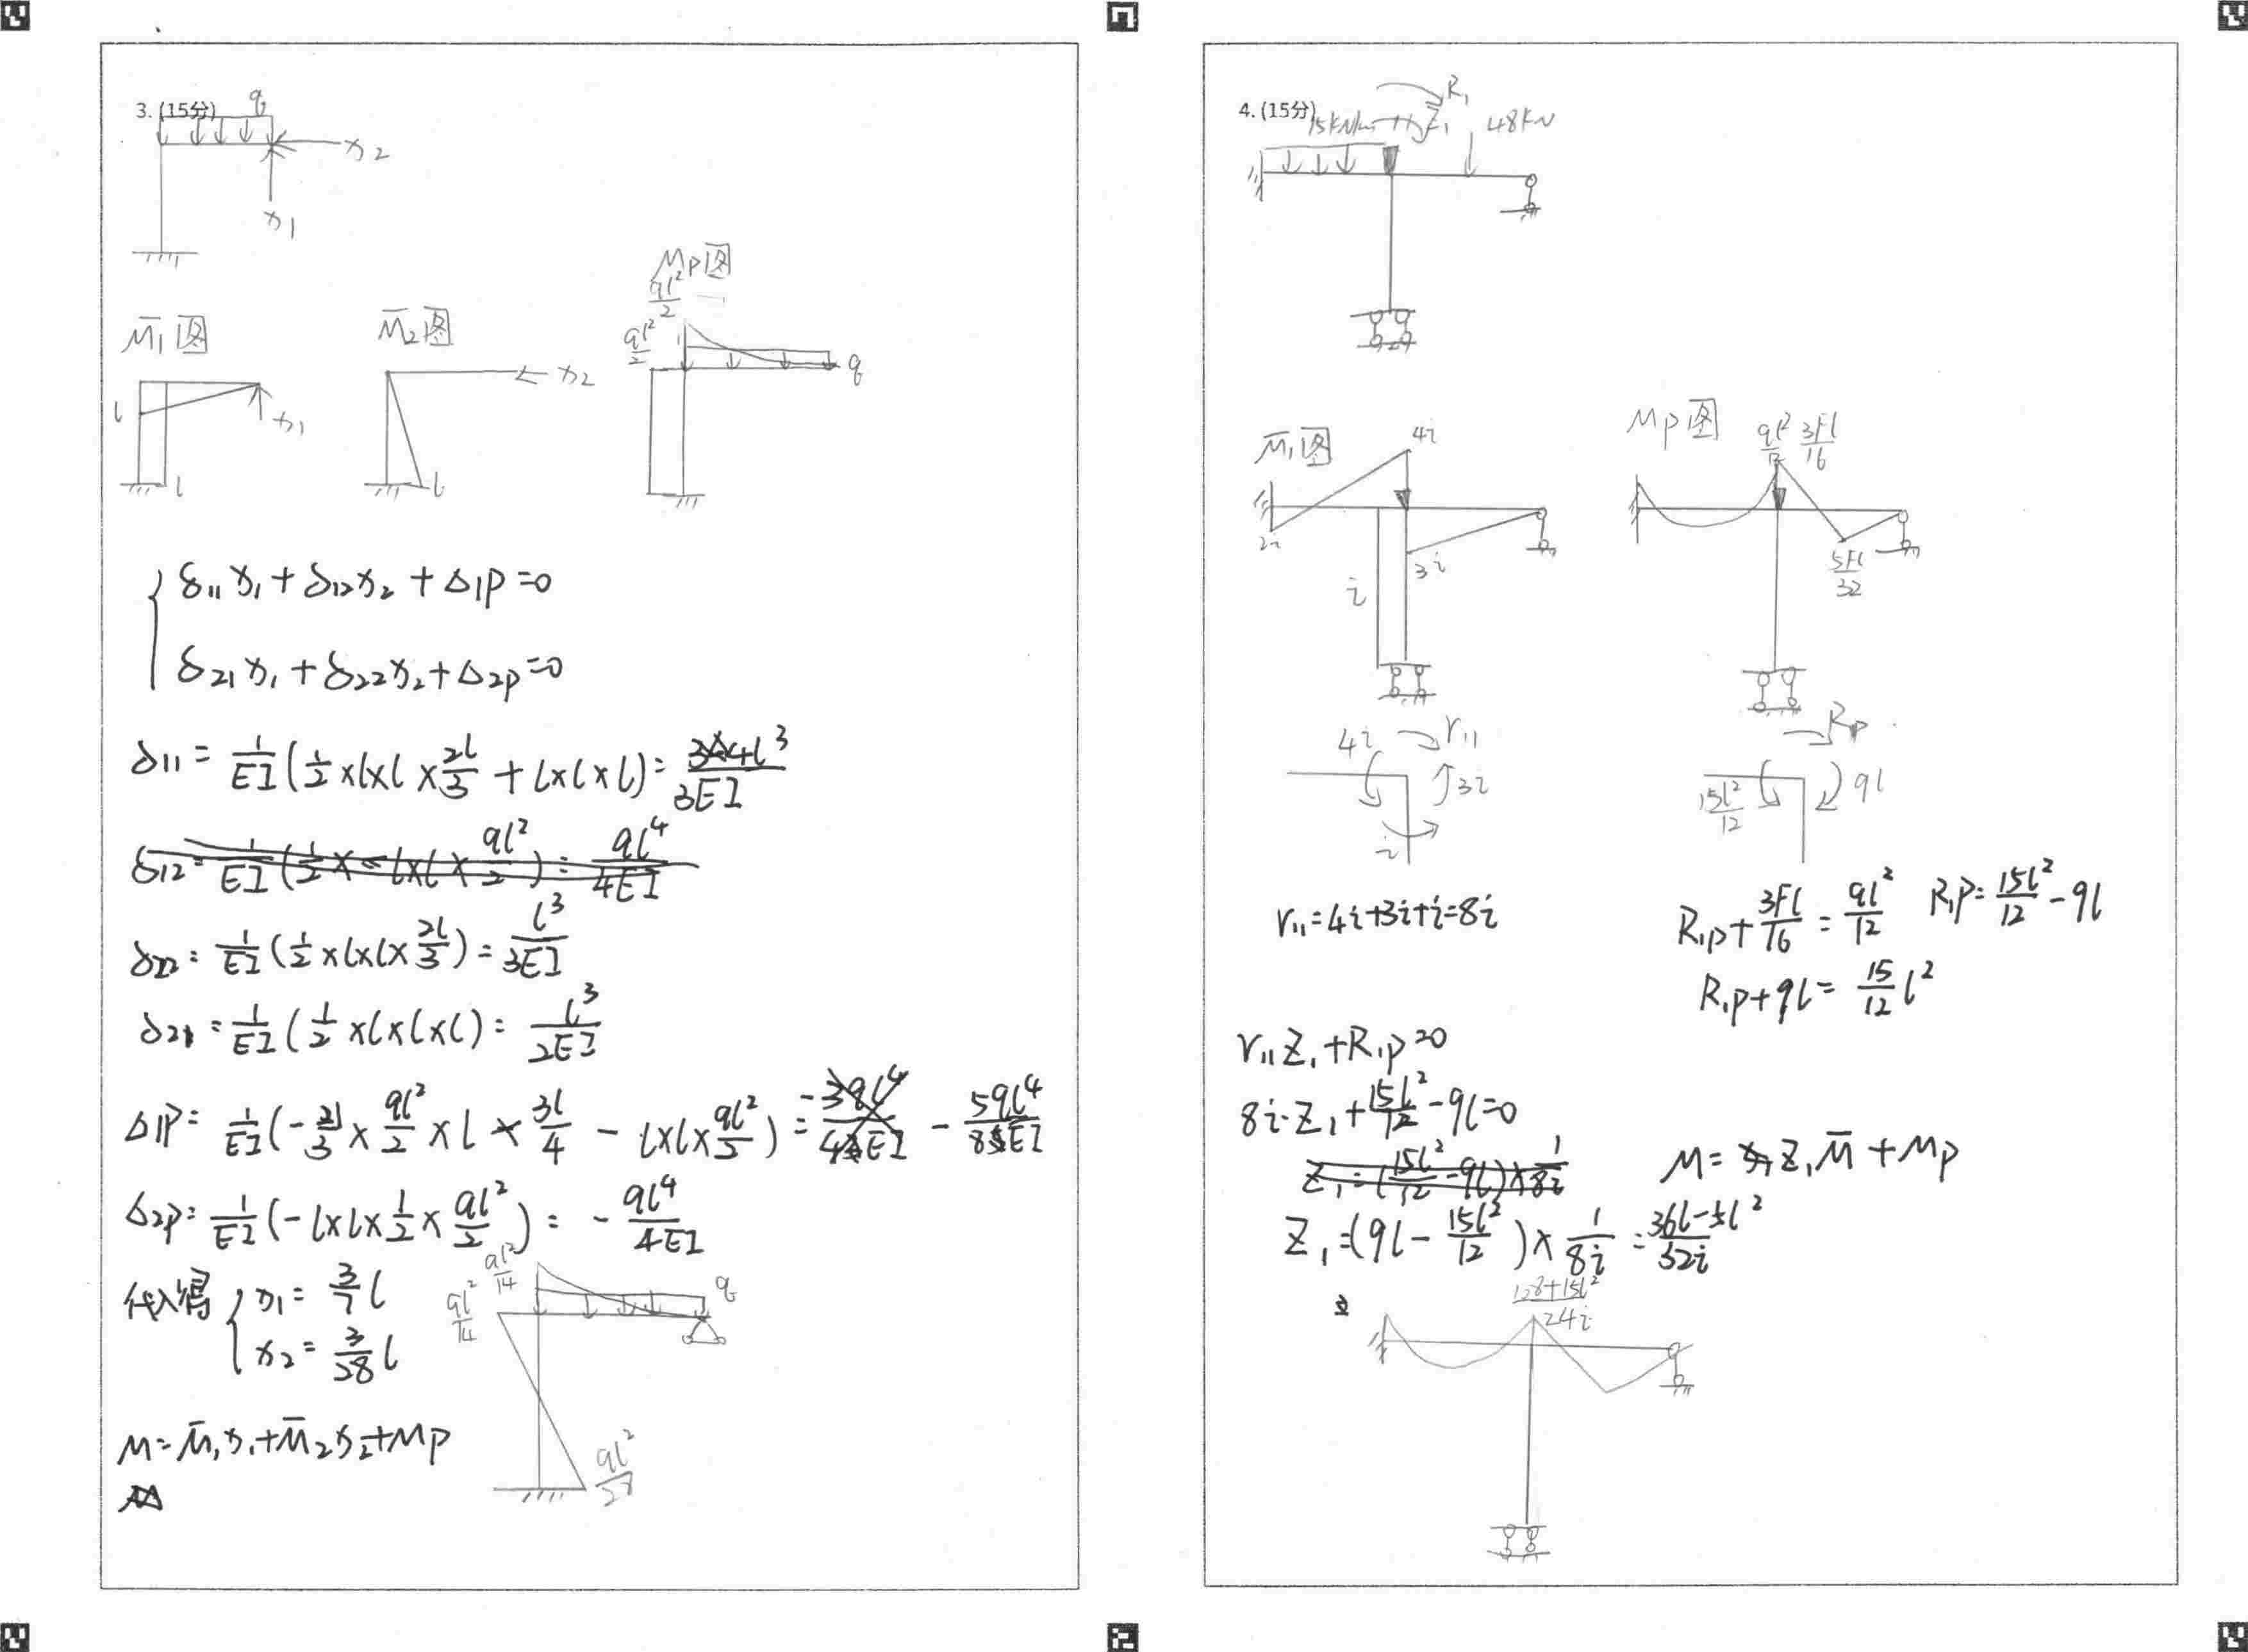 3. (15分)
q
x2
x1
M̄1图
M̄2图
Mp图
ql²/2
ql²/2
q
l
x1
l
x2
l
δ11x1+δ12x2+Δ1P=0
δ21x1+δ22x2+Δ2P=0
δ11=1/EI(1/2×l×l×2l/3+l×l×l)=4l³/3EI
δ12=1/EI(1/2×l×l×ql²/2)=ql⁴/4EI
δ22=1/EI(1/2×l×l×2l/3)=l³/3EI
δ21=1/EI(1/2×l×l×l)=l³/2EI
Δ1P=1/EI(-1/3×ql²/2×l×3l/4-l×l×ql²/2)=-5ql⁴/8EI
Δ2P=1/EI(-l×l×1/2×ql²/2)=-ql⁴/4EI
代入得 x1=3/7l
x2=3/28l
ql²/14
ql²/14
q
M=M̄1x1+M̄2x2+Mp
ql²/28
4. (15分)
R1
15kN/m
Z1
48kN
M̄1图
4i
2i
3i
i
Mp图
ql²/12
3Fl/16
5Fl/32
4i
r11
3i
i
RIP
15l²/12
9l
r11=4i+3i+i=8i
R1P+3Fl/16=ql²/12
R1P=15l²/12-9l
R1P+9l=15/12l²
r11Z1+R1P=0
8i·Z1+15l²/12-9l=0
Z1=(15l²/12-9l)×1/8i
M=Z1M̄+Mp
Z1=(9l-15l²/12)×1/8i=36l-5l²/32i
128+15l²/24i